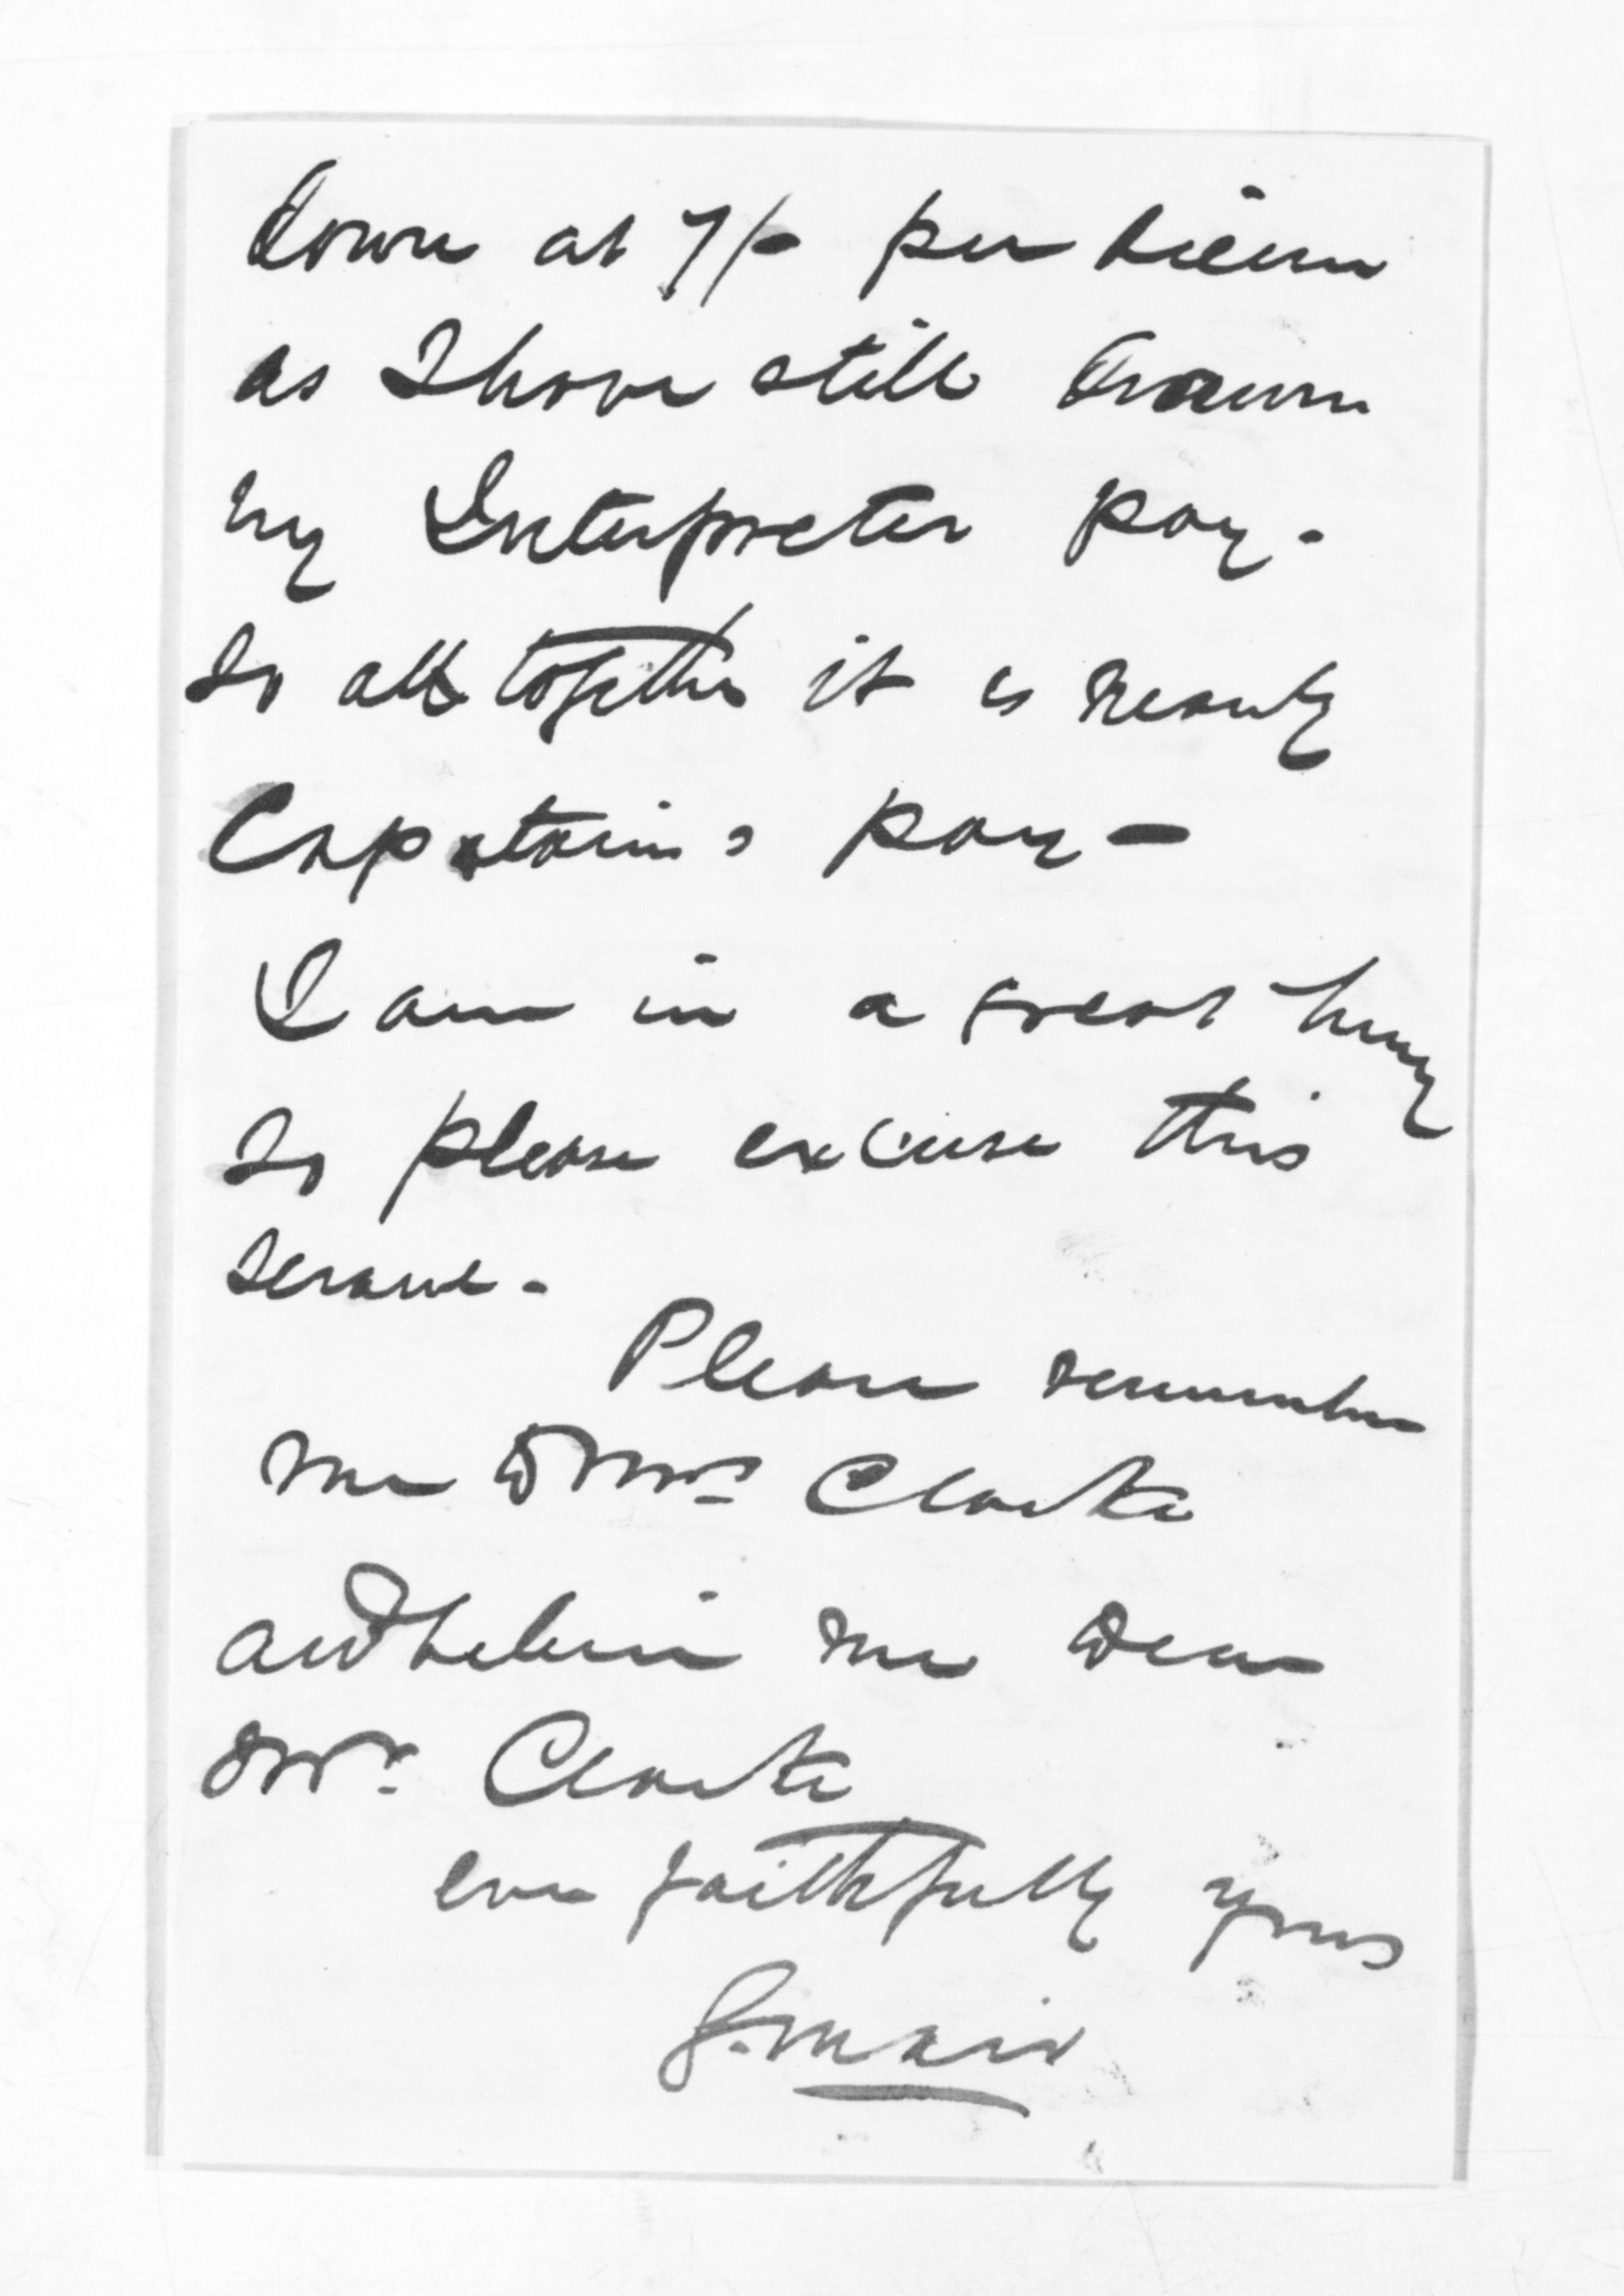 down at 7/- per diem
as I have still drawn
my Interpreter pay.
So all together it is nearly
Captain's pay -
I am in a great hurry
So please excuse this
scrawl.
Please remember
me to Mrs Clarke
and believe me dear
Mr. Clarke
ever faithfully yours
G. Mair